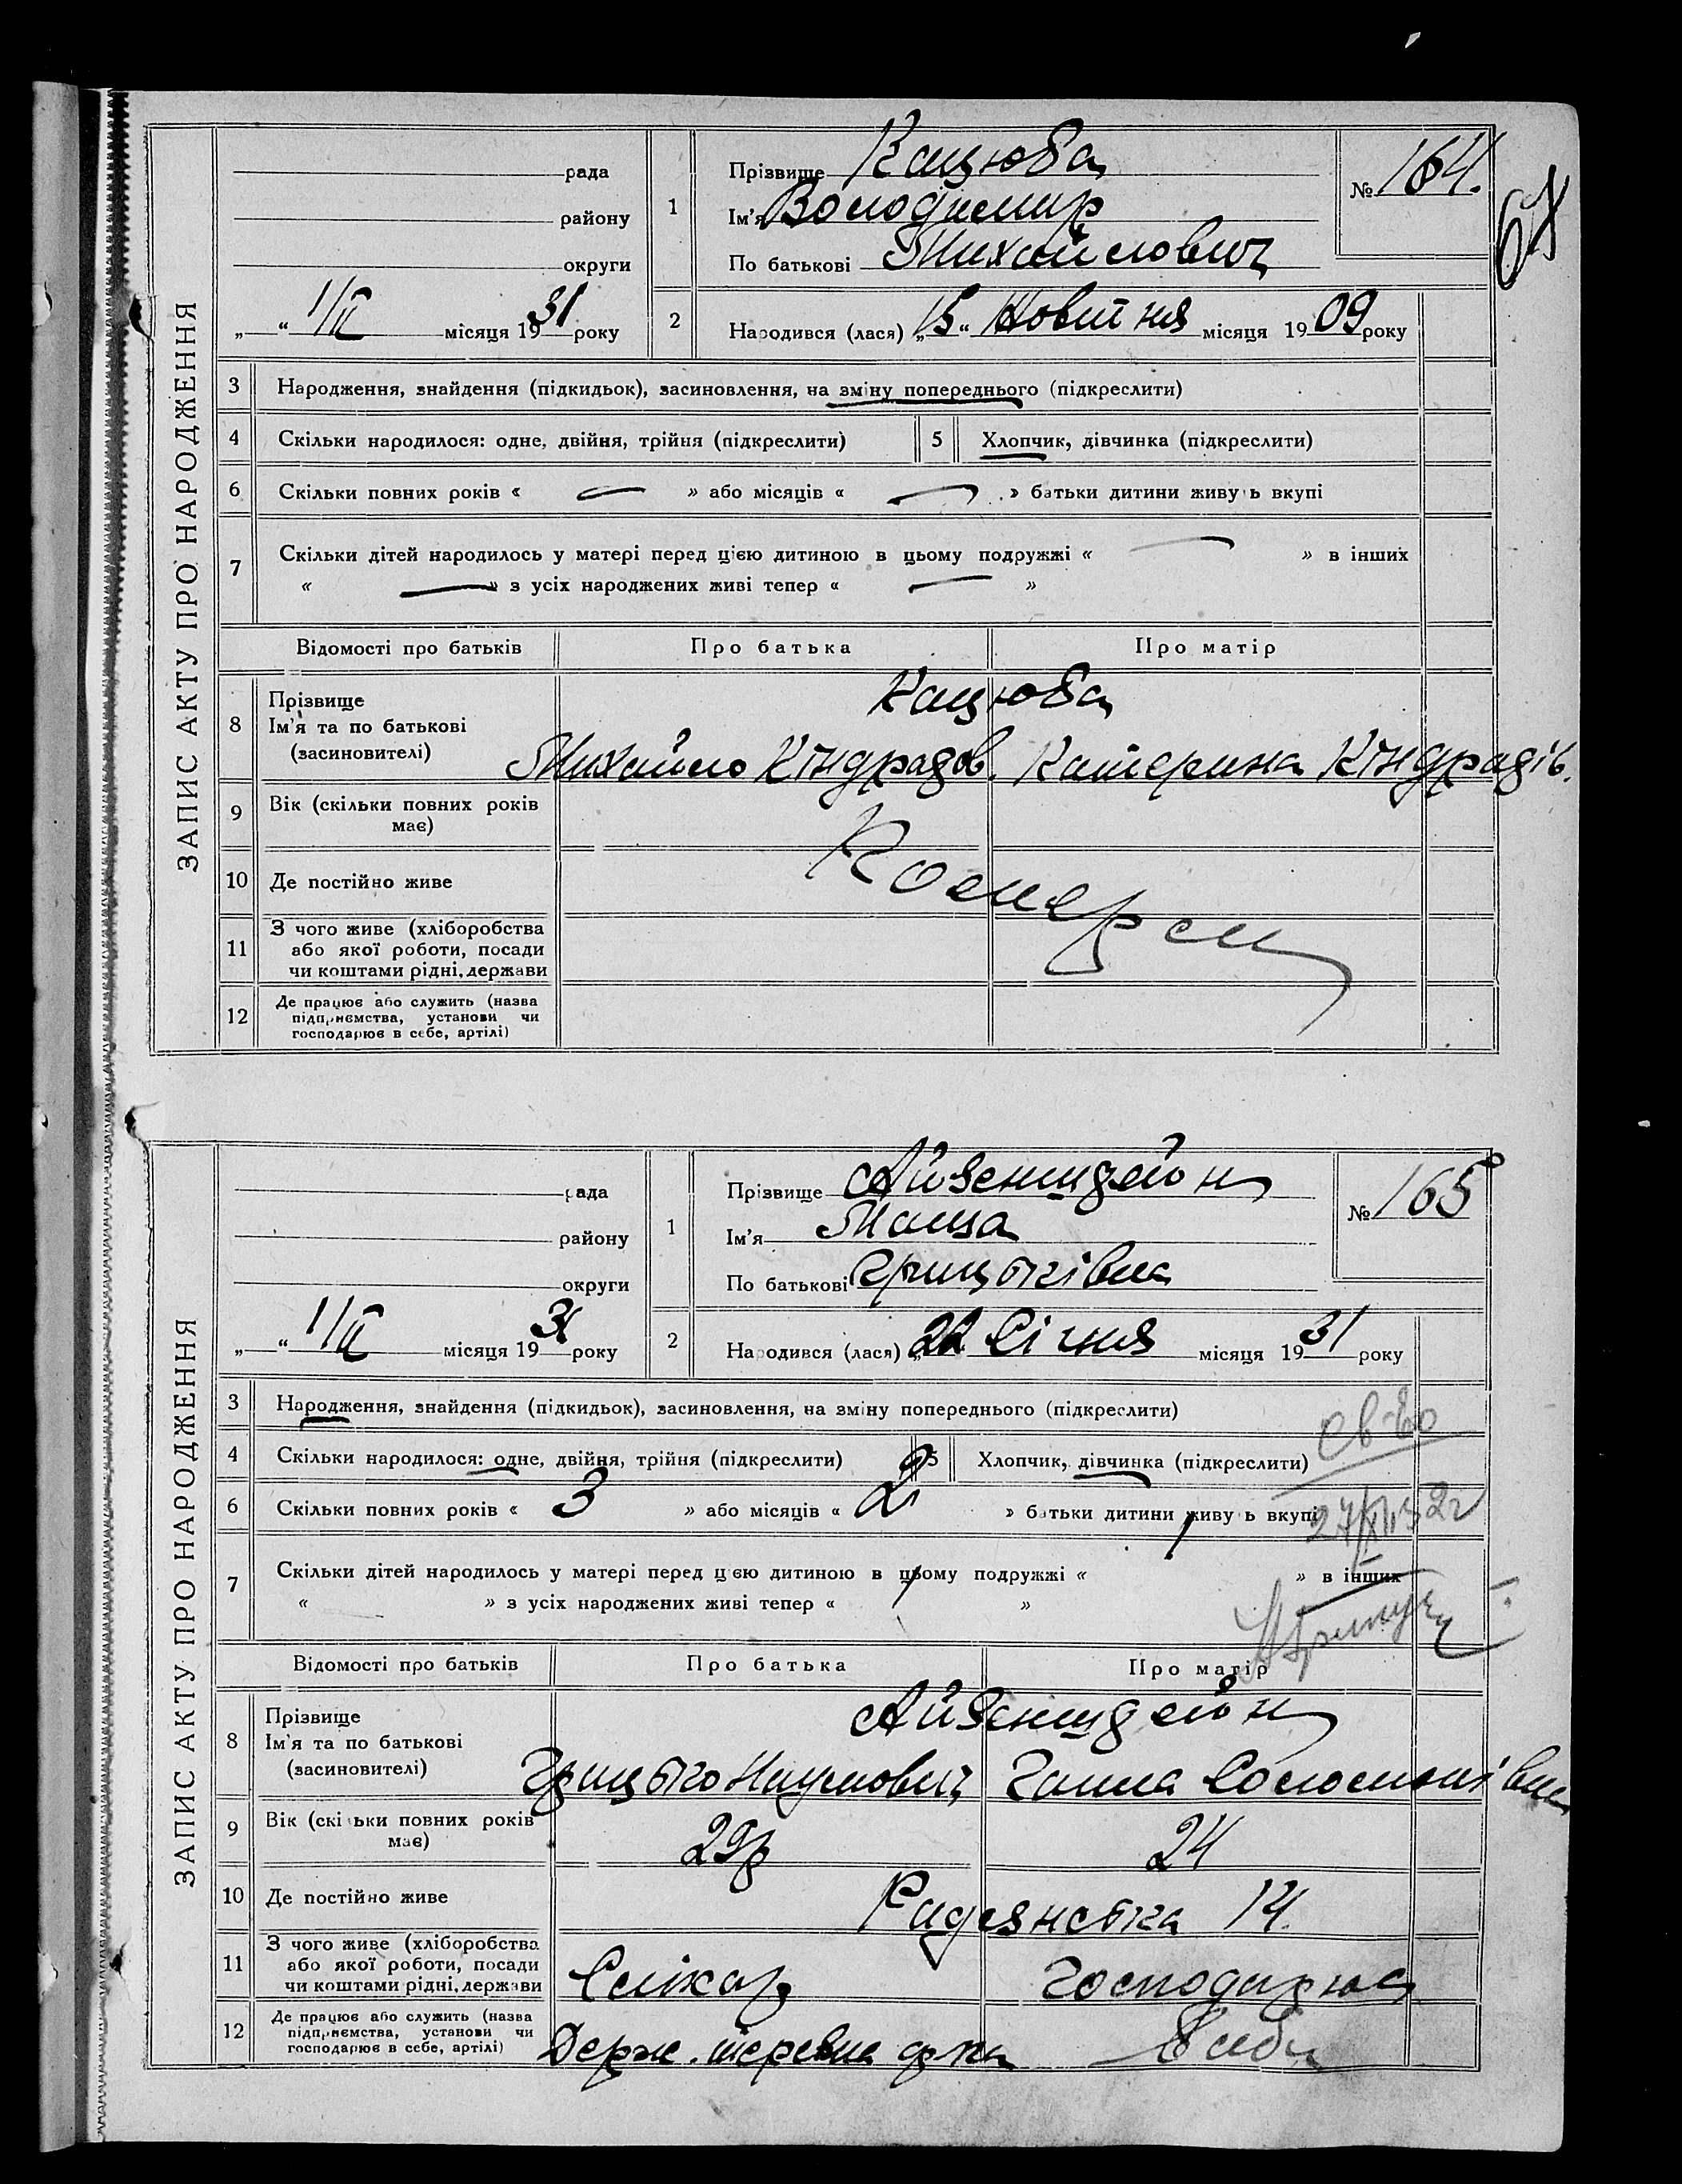 ЗАПИС АКТУ ПРО НАРОДЖЕННЯ
рада
району
округи
„ “ 1/II місяця 1931 року
1 Прізвище Кацюба
Ім'я Володимир
По батькові Михайлович
№ 164.
64
2 Народився (лася) „15“ Жовтня місяця 1909 року
3 Народження, знайдення (підкидьок), засиновлення, на зміну попереднього (підкреслити)
4 Скільки народилося: одне, двійня, трійня (підкреслити) 5 Хлопчик, дівчинка (підкреслити)
6 Скільки повних років « — » або місяців « — » батьки дитини живуть вкупі
7 Скільки дітей народилось у матері перед цією дитиною в цьому подружжі « — » в інших
« — » з усіх народжених живі тепер « — »
Відомості про батьків Про батька Про матір
8 Прізвище
Ім'я та по батькові
(засиновителі)
Кацюба
Михайло Кіндрадов. Катерина Кіндрадів.
9 Вік (скільки повних років має)
10 Де постійно живе
11 З чого живе (хліборобства
або якої роботи, посади
чи коштами рідні, держави
12 Де працює або служить (назва
підприємства, установи чи
господарює в себе, артілі)
ЗАПИС АКТУ ПРО НАРОДЖЕННЯ
рада
району
округи
„ “ 1/II місяця 1931 року
1 Прізвище Айзенштейн
Ім'я Маша
По батькові Грицьківна
№ 165
2 Народився (лася) „22 Січня місяця 1931 року
3 Народження, знайдення (підкидьок), засиновлення, на зміну попереднього (підкреслити)
4 Скільки народилося: одне, двійня, трійня (підкреслити) 5 Хлопчик, дівчинка (підкреслити)
Св-во
6 Скільки повних років « 3 » або місяців « 2 » батьки дитини живуть вкупі
27/XI 32г
7 Скільки дітей народилось у матері перед цією дитиною в цьому подружжі « » в інших
« » з усіх народжених живі тепер « »
Відомості про батьків Про батька Про матір
8 Прізвище
Ім'я та по батькові
(засиновителі)
Айзенштейн
Грицько Наумович Ганна Соломонівна
9 Вік (скільки повних років має) 29р 24
10 Де постійно живе Радянська 14.
11 З чого живе (хліборобства
або якої роботи, посади
чи коштами рідні, держави
Слюсар Господарює
12 Де працює або служить (назва
підприємства, установи чи
господарює в себе, артілі)
Держ. в себе